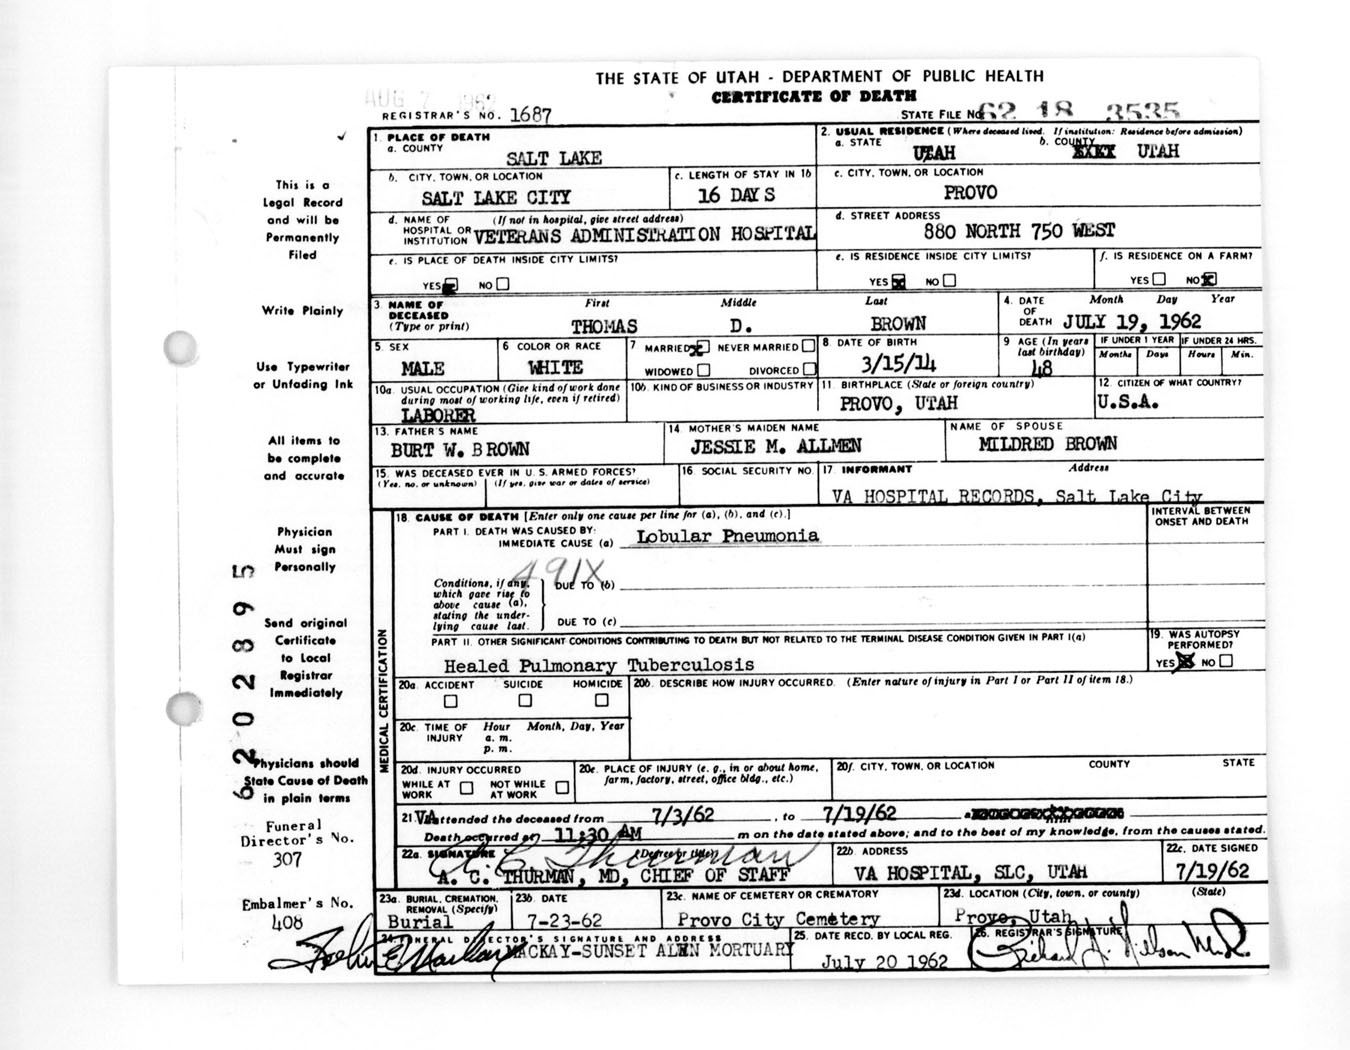 THE STATE OF UTAH - DEPARTMENT OF PUBLIC HEALTH
CERTIFICATE OF DEATH
AUG 7 1962
REGISTRAR'S NO. 1687
STATE FILE NO. 62 18 3535
1. PLACE OF DEATH
a. COUNTY
SALT LAKE
2. USUAL RESIDENCE (Where deceased lived. If institution: Residence before admission)
a. STATE b. COUNTY
UTAH UTAH
b. CITY, TOWN, OR LOCATION
SALT LAKE CITY
c. LENGTH OF STAY IN 1b
16 DAYS
c. CITY, TOWN, OR LOCATION
PROVO
d. NAME OF (If not in hospital, give street address)
HOSPITAL OR
INSTITUTION VETERANS ADMINISTRATION HOSPITAL
d. STREET ADDRESS
880 NORTH 750 WEST
e. IS PLACE OF DEATH INSIDE CITY LIMITS?
YES NO
e. IS RESIDENCE INSIDE CITY LIMITS?
YES X NO
f. IS RESIDENCE ON A FARM?
YES NO X
3. NAME OF DECEASED
(Type or print)
First Middle Last
THOMAS D. BROWN
4. DATE OF DEATH
Month Day Year
JULY 19, 1962
5. SEX
MALE
6 COLOR OR RACE
WHITE
7 MARRIED X NEVER MARRIED
WIDOWED DIVORCED
8. DATE OF BIRTH
3/15/14
9 AGE (In years last birthday)
48
IF UNDER 1 YEAR IF UNDER 24 HRS.
Months Days Hours Min.
10a. USUAL OCCUPATION (Give kind of work done
during most of working life, even if retired)
LABORER
10b. KIND OF BUSINESS OR INDUSTRY
11. BIRTHPLACE (State or foreign country)
PROVO, UTAH
12. CITIZEN OF WHAT COUNTRY?
U.S.A.
13. FATHER'S NAME
BURT W. BROWN
14 MOTHER'S MAIDEN NAME
JESSIE M. ALLMEN
NAME OF SPOUSE
MILDRED BROWN
15. WAS DECEASED EVER IN U. S. ARMED FORCES?
(Yes, no. or unknown) (If yes, give war or dates of service)
16. SOCIAL SECURITY NO.
17. INFORMANT Address
VA HOSPITAL RECORDS, Salt Lake City
18. CAUSE OF DEATH [Enter only one cause per line for (a), (b), and (c).]
INTERVAL BETWEEN
ONSET AND DEATH
PART I. DEATH WAS CAUSED BY:
IMMEDIATE CAUSE (a) Lobular Pneumonia
491X
Conditions, if any,
which gave rise to
above cause (a),
stating the under-
lying cause last.
DUE TO (b)
DUE TO (c)
PART II. OTHER SIGNIFICANT CONDITIONS CONTRIBUTING TO DEATH BUT NOT RELATED TO THE TERMINAL DISEASE CONDITION GIVEN IN PART I(a)
Healed Pulmonary Tuberculosis
19. WAS AUTOPSY
PERFORMED?
YES X NO
MEDICAL CERTIFICATION
20a. ACCIDENT SUICIDE HOMICIDE
20b. DESCRIBE HOW INJURY OCCURRED. (Enter nature of injury in Part I or Part II of item 18.)
20c. TIME OF INJURY
Hour Month, Day, Year
a. m.
p. m.
20d. INJURY OCCURRED
WHILE AT WORK NOT WHILE AT WORK
20e. PLACE OF INJURY (e. g., in or about home,
farm, factory, street, office bldg., etc.)
20f. CITY, TOWN, OR LOCATION COUNTY STATE
21. VA attended the deceased from 7/3/62, to 7/19/62
Death occurred on 11:30 AM m on the date stated above; and to the best of my knowledge, from the causes stated.
22a. SIGNATURE (Degree or title)
A. C. Thurman
A. C. THURMAN, MD, CHIEF OF STAFF
22b. ADDRESS
VA HOSPITAL, SLC, UTAH
22c. DATE SIGNED
7/19/62
23a. BURIAL, CREMATION,
REMOVAL (Specify)
Burial
23b. DATE
7-23-62
23c. NAME OF CEMETERY OR CREMATORY
Provo City Cemetery
23d. LOCATION (City, town, or county) (State)
Provo, Utah
24. FUNERAL DIRECTOR'S SIGNATURE AND ADDRESS
MACKAY-SUNSET LAWN MORTUARY
25. DATE RECD. BY LOCAL REG.
July 20 1962
26. REGISTRAR'S SIGNATURE
This is a
Legal Record
and will be
Permanently
Filed
Write Plainly
Use Typewriter
or Unfading Ink
All items to
be complete
and accurate
Physician
Must sign
Personally
Send original
Certificate
to Local
Registrar
Immediately
Physicians should
State Cause of Death
in plain terms
Funeral
Director's No.
307
Embalmer's No.
408
62 02895